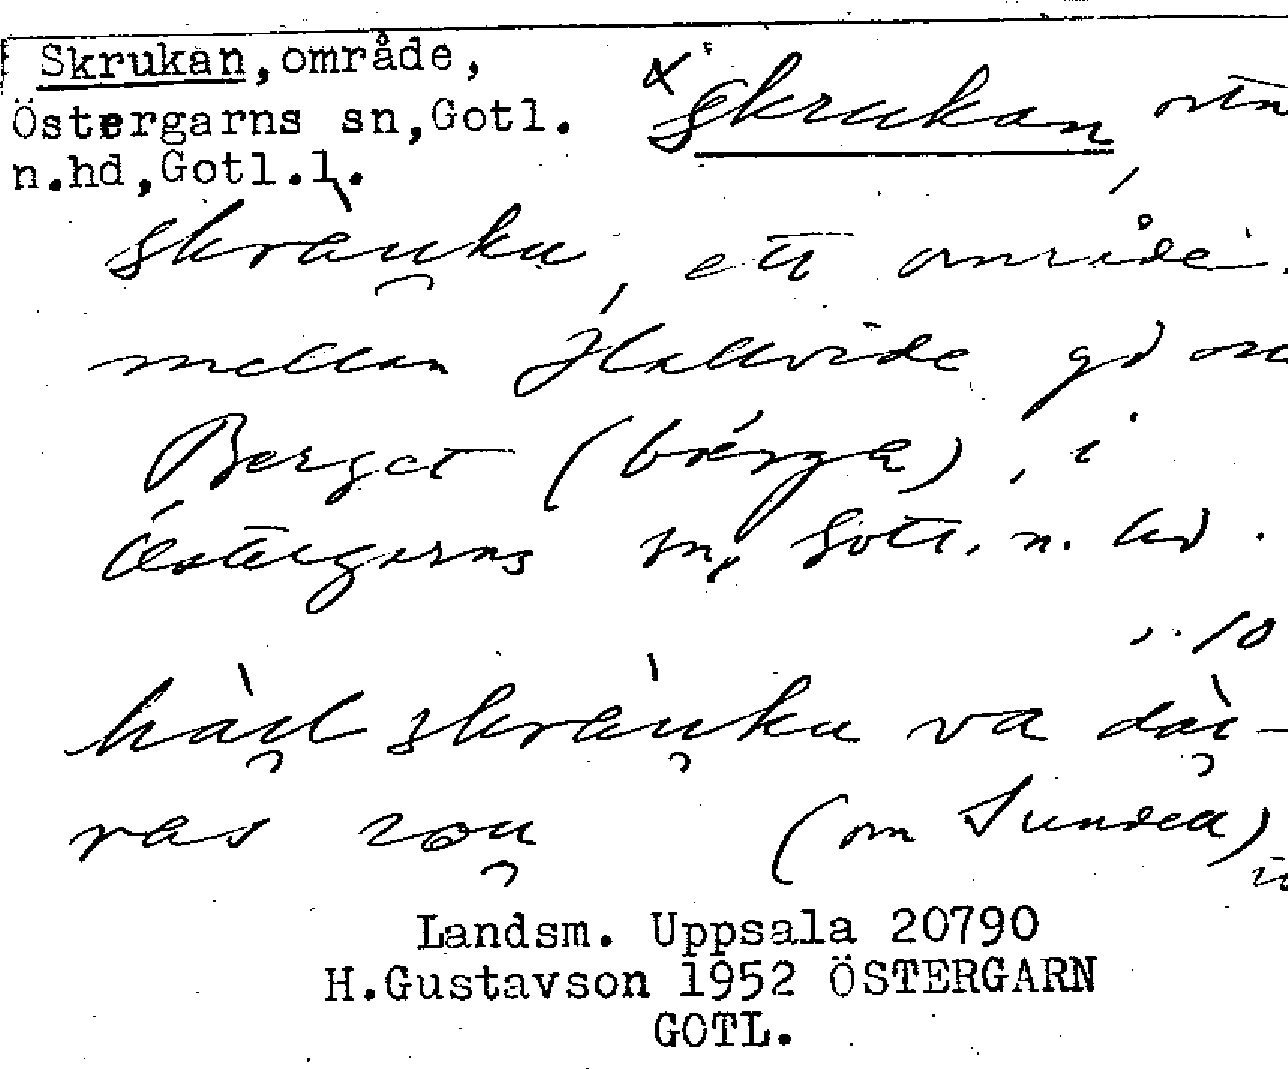 Skrukan, område,
Östergarns sn, Gotl.
n.hd, Gotl.l.
Skrukan, ortn
skràuku, ett område
mellan Hallvide gd oc
Berget (bérga), i
Östergarns sn, Gotl. n. hd.
10
skràuku va dài-
ras
(om Sundea)
Landsm. Uppsala 20790
H.Gustavson 1952 ÖSTERGARN
GOTL.